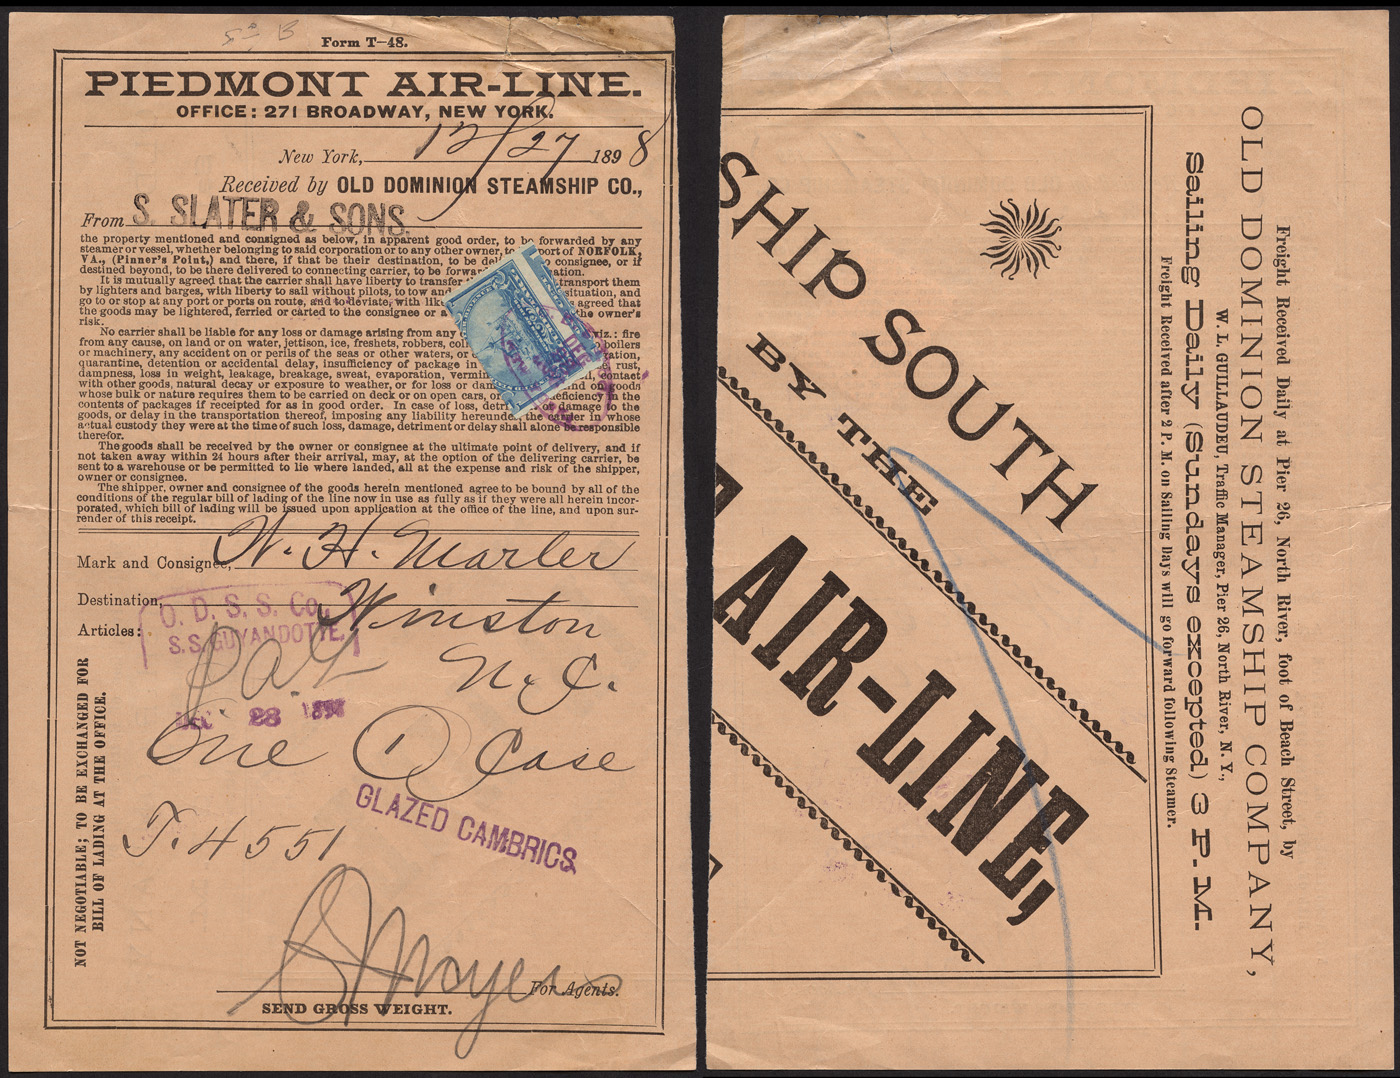 Form T-48.
PIEDMONT AIR-LINE.
OFFICE: 271 BROADWAY, NEW YORK.
New York, 12/27 1898
Received by OLD DOMINION STEAMSHIP CO.,
From S. SLATER & SONS.
the property mentioned and consigned as below, in apparent good order, to be forwarded by any
steamer or vessel, whether belonging to said corporation or to any other owner, to port of NORFOLK,
VA., (Pinner's Point,) and there, if that be their destination, to be consignee, or if
destined beyond, to be there delivered to connecting carrier, to be
It is mutually agreed that the carrier shall have liberty to transfer transport them
by lighters and barges, with liberty to sail without pilots, to tow and situation, and
go to or stop at any port or ports on route, and to deviate, with agreed that
the goods may be lightered, ferried or carted to the consignee or a the owner's
risk.
No carrier shall be liable for any loss or damage arising from any viz.: fire
from any cause, on land or on water, jettison, ice, freshets, robbers, boilers
or machinery, any accident on or perils of the seas or other waters, or
quarantine, detention or accidental delay, insufficiency of package in rust,
dampness, loss in weight, leakage, breakage, sweat, evaporation, contact
with other goods, natural decay or exposure to weather, or for loss or and on goods
whose bulk or nature requires them to be carried on deck or on open cars, or deficiency in the
contents of packages if receipted for as in good order. In case of loss, damage to the
goods, or delay in the transportation thereof, imposing any liability hereunder, the carrier in whose
actual custody they were at the time of such loss, damage, detriment or delay shall alone be responsible
therefor.
The goods shall be received by the owner or consignee at the ultimate point of delivery, and if
not taken away within 24 hours after their arrival, may, at the option of the delivering carrier, be
sent to a warehouse or be permitted to lie where landed, all at the expense and risk of the shipper,
owner or consignee.
The shipper, owner and consignee of the goods herein mentioned agree to be bound by all of the
conditions of the regular bill of lading of the line now in use as fully as if they were all herein incor-
porated, which bill of lading will be issued upon application at the office of the line, and upon sur-
render of this receipt.
Mark and Consignee, W. H. Marler
Destination, Winston
O. D. S. S. Co.,
S.S. GUYANDOTTE.
Articles:
N. C.
DEC 28
One 1 Case
GLAZED CAMBRICS
T. 4551
NOT NEGOTIABLE; TO BE EXCHANGED FOR
BILL OF LADING AT THE OFFICE.
For Agents.
SEND GROSS WEIGHT.
SHIP SOUTH
BY THE
AIR-LINE,
Freight Received Daily at Pier 26, North River, foot of Beach Street, by
OLD DOMINION STEAMSHIP COMPANY,
W. L. GUILLAUDEU, Traffic Manager, Pier 26, North River, N. Y.,
Sailing Daily (Sundays excepted) 3 P. M.
Freight Received after 2 P. M. on Sailing Days will go forward following Steamer.